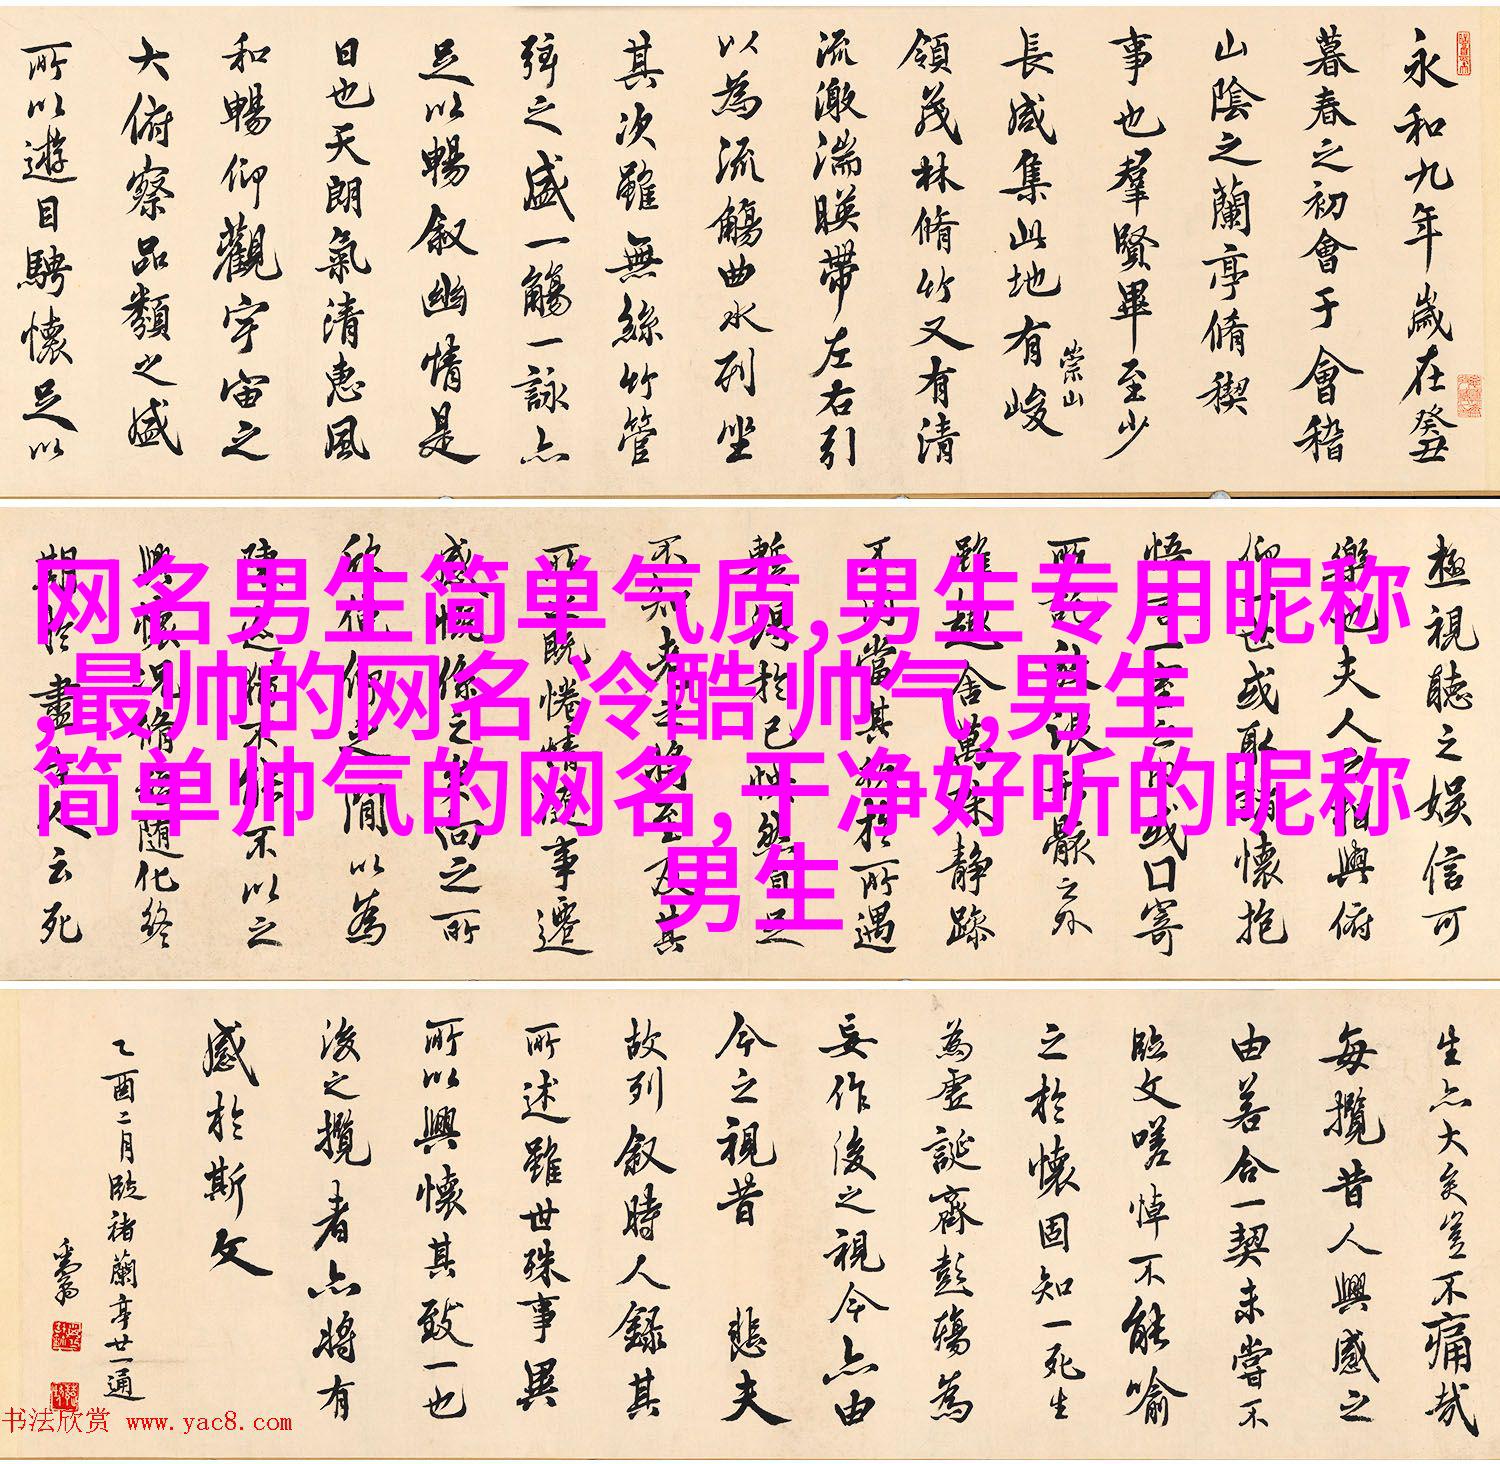 永和九年歲在癸丑
暮春之初會于會稽
山陰之蘭亭脩稧
事也羣賢畢至少
長咸集此地有峻
崇山
領茂林脩竹又有清
流激湍暎帶左右引
以為流觴曲水列坐
其次雖無絲竹管
弦之盛一觴一詠亦
足以暢敘幽情是
日也天朗氣清惠風
和暢仰觀宇宙之
大俯察品類之盛
所以遊目騁懷足以
網名男生简单气质,男生专用昵称
,最帅的网名 冷酷 帅气,男生
简单帅气的网名,干净好听的昵称
男生
極視聽之娛信可
樂也夫人之相與俯
仰世或取諸懷抱
悟言一室之或口寄
所託放浪形骸之外
雖趣舍萬殊靜躁
不同當其於所遇
暫得於己快然自足
不知老之將至及其
所既惓情隨事遷
感慨係之矣向之所
欣俛仰之間以為
陳迹猶不能不以之
興懷況脩短隨化終
期於盡古人云死
生亦大矣豈不痛哉
每攬昔人興感之
由若合一契未嘗不
臨文嗟悼不能喻
之於懷固知一死生
為虛誕齊彭殤為
妄作後之視今亦由
今之視昔 悲夫
故列敘時人錄其
所述雖世殊事異
所以興懷其致一也
後之攬者亦將有
感於斯文
乙酉二月臨褚蘭亭廿一通
书法欣赏 www.yac8.com